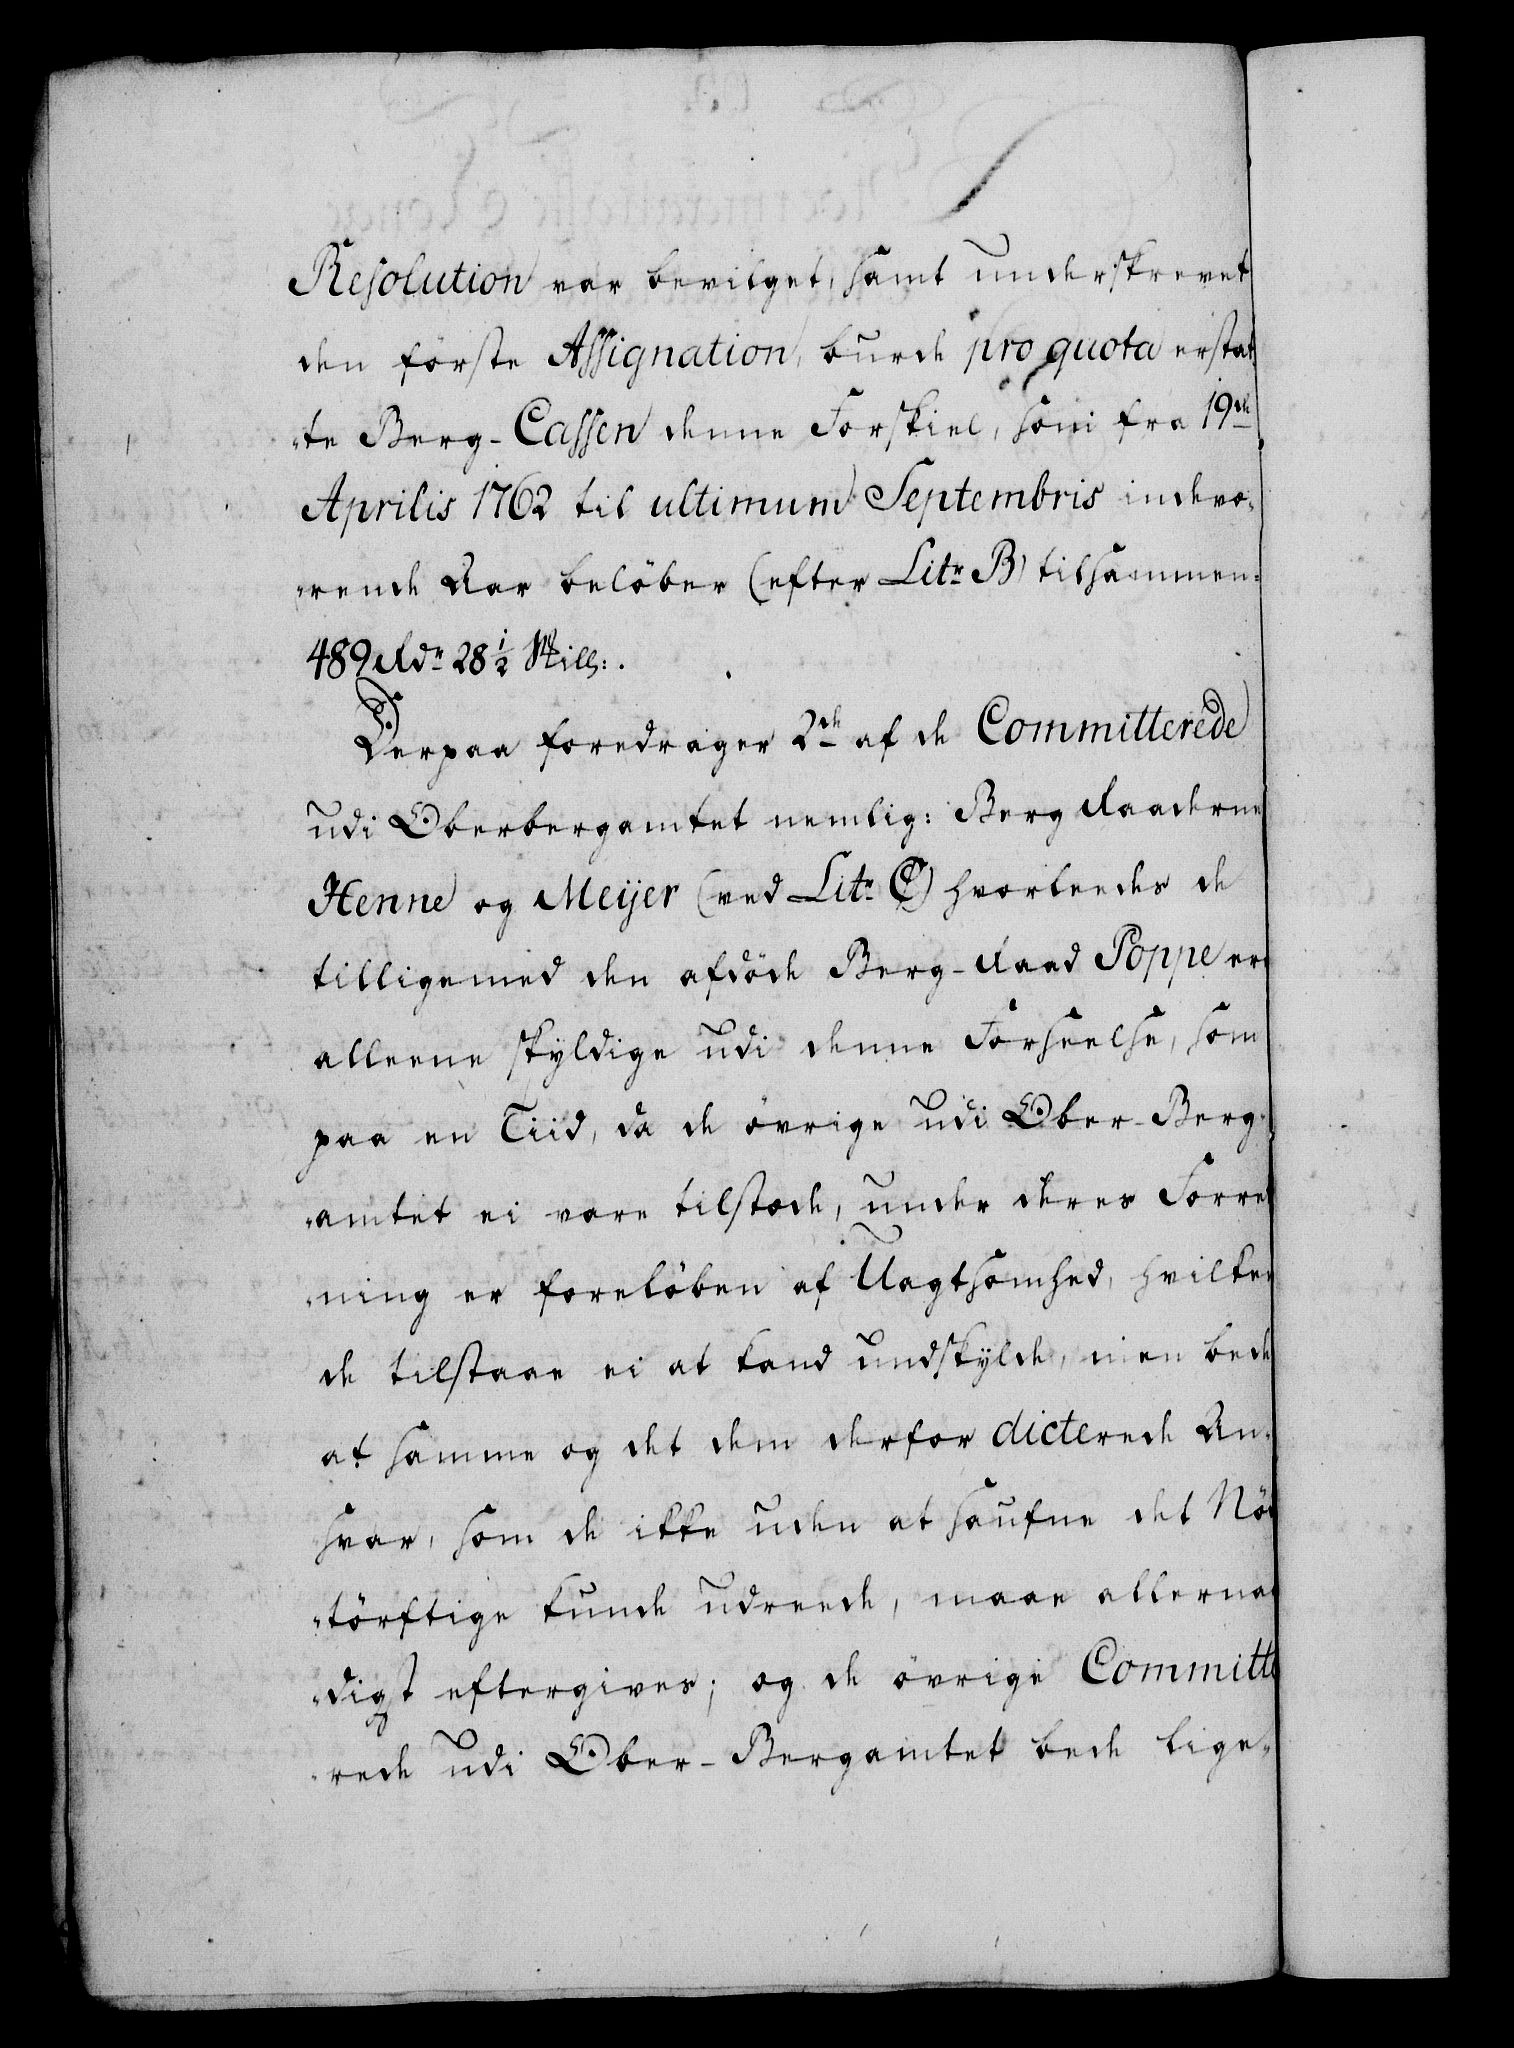 Resolution var bevilget, samt underskrevet
den förste Assignation, burde pro quota erstat
"te Berg-Cassen denne Forskiel, som fra 19de
Aprilis 1762 til ultimum Septembris indevæ„
"rende Aar belöber (efter Litr B) tilsammen„
489 Rdr 28 1/2 Skill:.
Derpaa foredrager 2de af de Committerede
udi Oberbergamtet nemlig: Berg Raaderne
Henne og Meijer (ved Litr C) hvorledes de
tilligemed den afdöde Berg-Raad Poppe ere
alleene skyldige udi denne Forseelse, som
paa en Tiid, da de övrige udi Ober-Berg„
"amtet ei vare tilstæde, under deres Forret
"ning er foreløben af Uagtsomhed, hvilken
de tilstaae ei at kand undskylde, men bede
at samme og det dem derfor dicterede An„
svar, som de ikke uden at saufne det Nöd
"törftige kunde udreede, maae allernaa
"digst eftergives; og de övrige Committe
"rede udi Ober-Bergamtet bede lige„